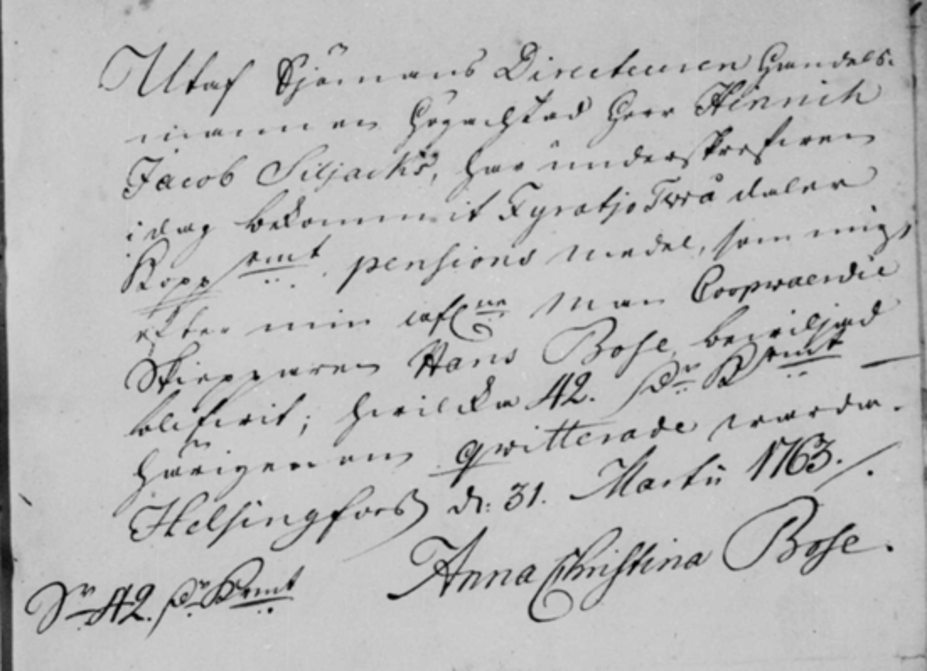 Utaf Sjömans Directeuren Handels-
mannen Högachtad Herr Hinrich
Jacob Siljacks, har underskrefwen
i dag bekommit Fyratjo Twå daler
Kopp rmt pensions medel, som mig
efter min afl ne Man Coopvaerdie
Skiepparen Hans Bose bewiljad
blifwit; hwilcka 42. Dr K rmt
härigenom qwitterade warda.
Helsingfors d: 31. Martii 1763./.
Anna Christina Bose.
Sr 42. Dr K rmt